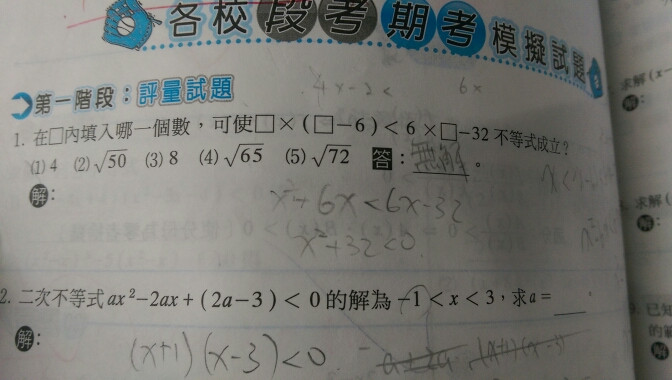 各校段考期考模擬試題
4x-2<    6x
第一階段：評量試題
1. 在□內填入哪一個數，可使□×(□-6)<6×□-32 不等式成立？
(1) 4 (2) √50 (3) 8 (4) √65 (5) √72 答：無解。
解：
x²+6x<6x-32
x²+32<0
2. 二次不等式 ax²-2ax+(2a-3)<0 的解為 -1<x<3，求 a=
解：
(x+1)(x-3)<0
求解(x-
解：
求解(
解：
已知
的範
解